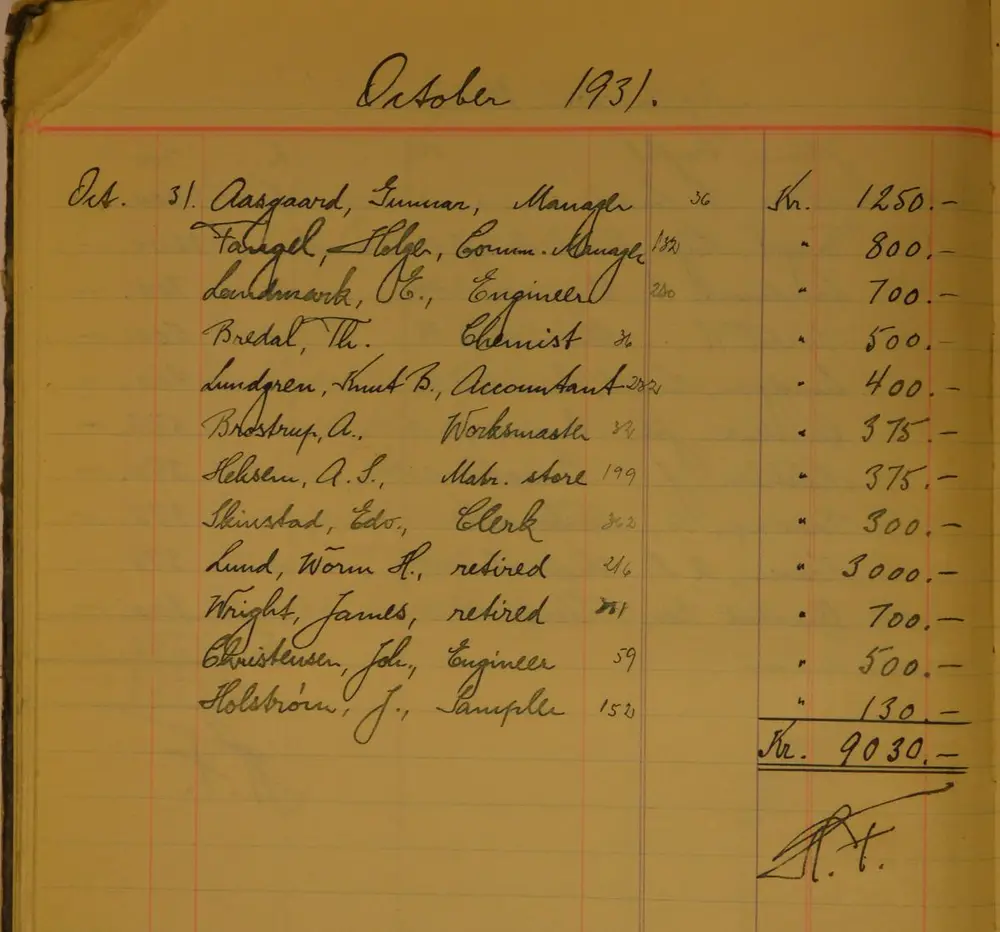 October 1931.
Oct. 31. Aasgaard, Gunnar, Manager 36 Kr. 1250.—
Fangel, Holger, Comm. Manager 132 " 800.—
Landmark, E., Engineer 200 " 700.—
Bredal, Th. Chemist 36 " 500.—
Lundgren, Knut B., Accountant 212 " 400.—
Brostrup, A., Worksmaster " 375.—
Heksem, A. S., Matr. store 199 " 375.—
Skinstad, Edv., Clerk 362 " 300.—
Lund, Worm H., retired 216 " 3000.—
Wright, James, retired " 700.—
Christensen, Joh., Engineer 59 " 500.—
Holström, J., Sampler 152 " 130.—
Kr. 9030.—
H. F.